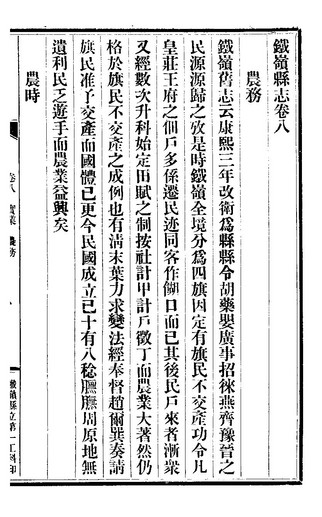 鐵嶺縣志卷八
農務
鐵嶺舊志云康熙三年改衛爲縣縣令胡藥嬰廣事招徠燕齊豫晉之
民源源歸之攷是時鐵嶺全境分爲四旗因定有旗民不交產功令凡
皇莊王府之佃戶多係遷民迹同客作餬口而已其後民戶來者漸衆
又經數次升科始定田賦之制按社計甲計戶徵丁而農業大著然仍
格於旗民不交產之成例也有清末葉力求變法經奉督趙爾巽奏請
旗民准予交產而國體已更今民國成立已十有八稔膴膴周原地無
遺利民乏遊手而農業益興矣
農時
卷八 實業 農務
鐵嶺縣立第一工科印